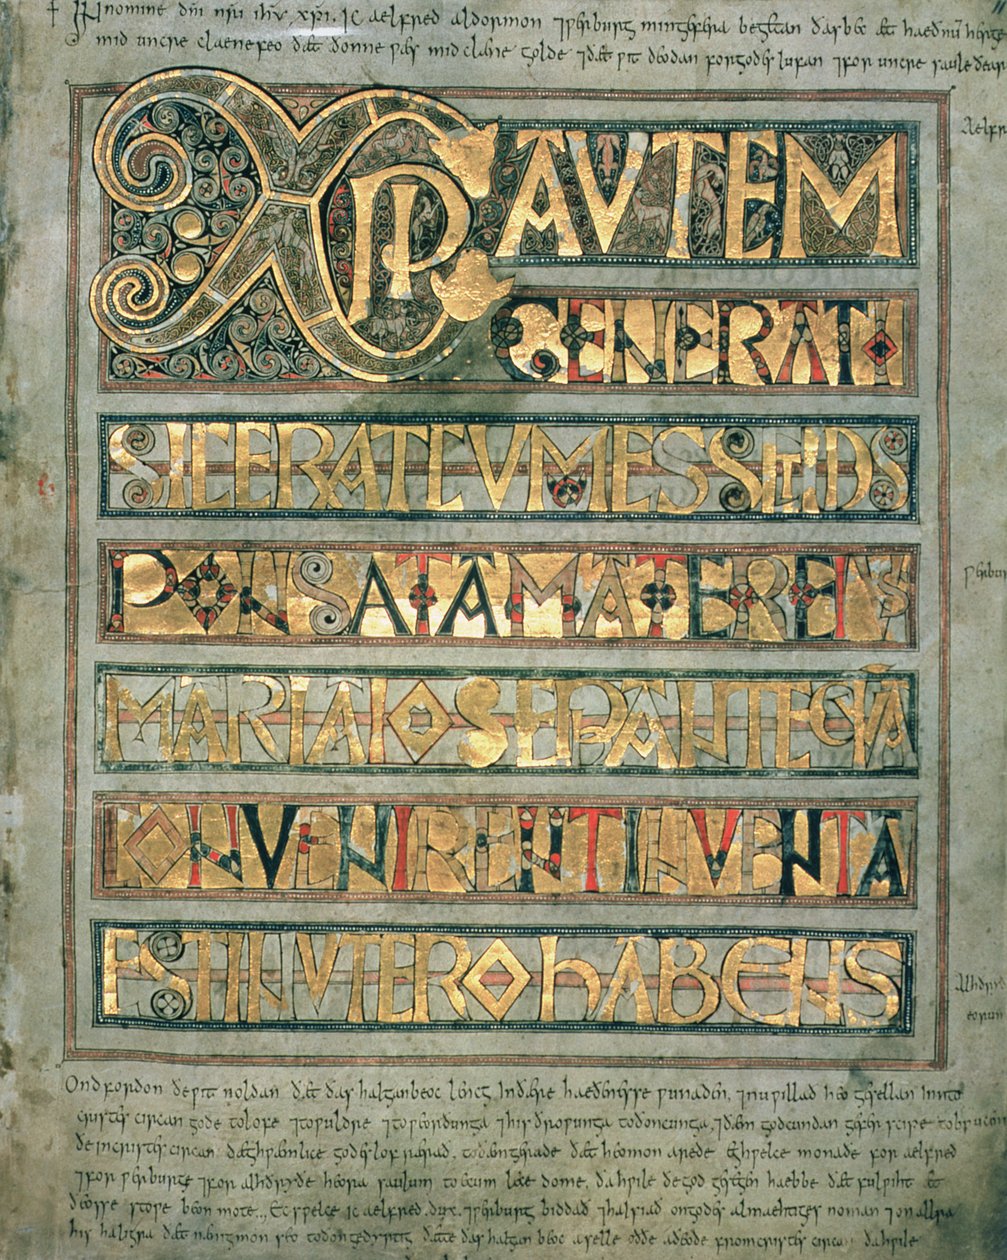 + In nomine dñi nr̃i ihũ xpĩ. Ic aelfred aldormon ⁊ werburg min gefera begetan ðas bec æt haeðnũ herge
mid uncre claene feo ðæt ðonne wæs mid clæne golde ⁊ ðæt wit deodan for godes lufan ⁊ for uncre saule ðear
Aelfr
XP AVTEM
GENERATIO
SIC ERAT CVM ESSET DIS
PONSATA MATER EIVS
werbur
MARIA IOSEP ANTEQVĀ
CONVENIRENT INVENTA
EST IN VTERO HABENS
Alhðryð
eorum
Ond forðon ðe wit noldan ðæt ðas halgan beoc lencg in ðære haeðenesse wunaden, ⁊ nu willað heo gesellan inn to
cristes circan gode to lofe ⁊ to wuldre ⁊ to weorðunga ⁊ his ðrowunga to ðoncunga, ⁊ ðæm godcundan geferscipe to brucen
ðe in cristes circan dæghwæmlice godes lof rærað, to ðæm gerade ðæt heo mon arede eghwelce monaðe for aelfred
⁊ for werburge ⁊ for alhðryðe heora saulum to ecum lecedome, ða hwile ðe god gesegen haebbe ðæt fulwiht æt
ðeosse stowe beon mote. Ec swelce ic aelfred dux ⁊ werburg biddað ⁊ halsiað on godes almaehtiges noman ⁊ on allra
his haligra ðæt nænig mon seo to ðon gedyrstig ðætte ðas halgan beoc aselle oððe aðeode from cristes circan ða hwile